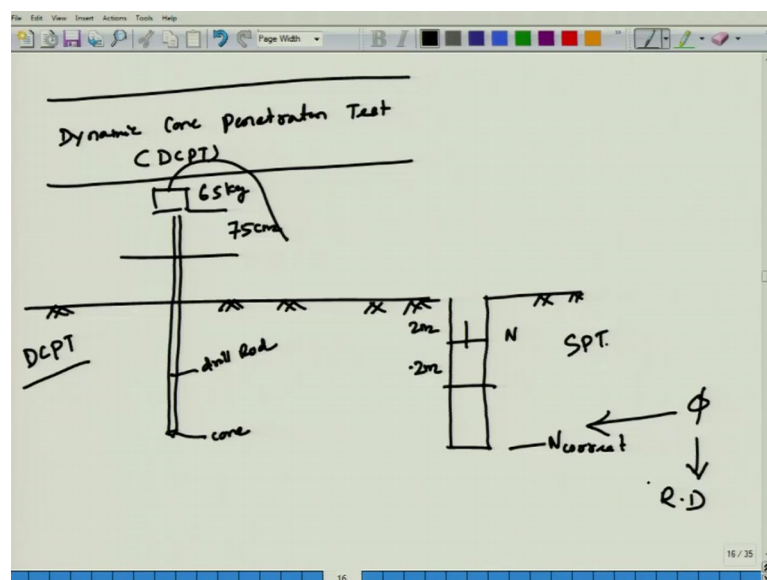 File Edit View Insert Actions Tools Help
Page Width
B I
Dynamic Cone Penetraton Test
(DCPT)
65kg
75cm
DCPT
drill Rod
cone
2m
N
SPT.
2m
Ncorrect
φ
R.D
16 / 35
16